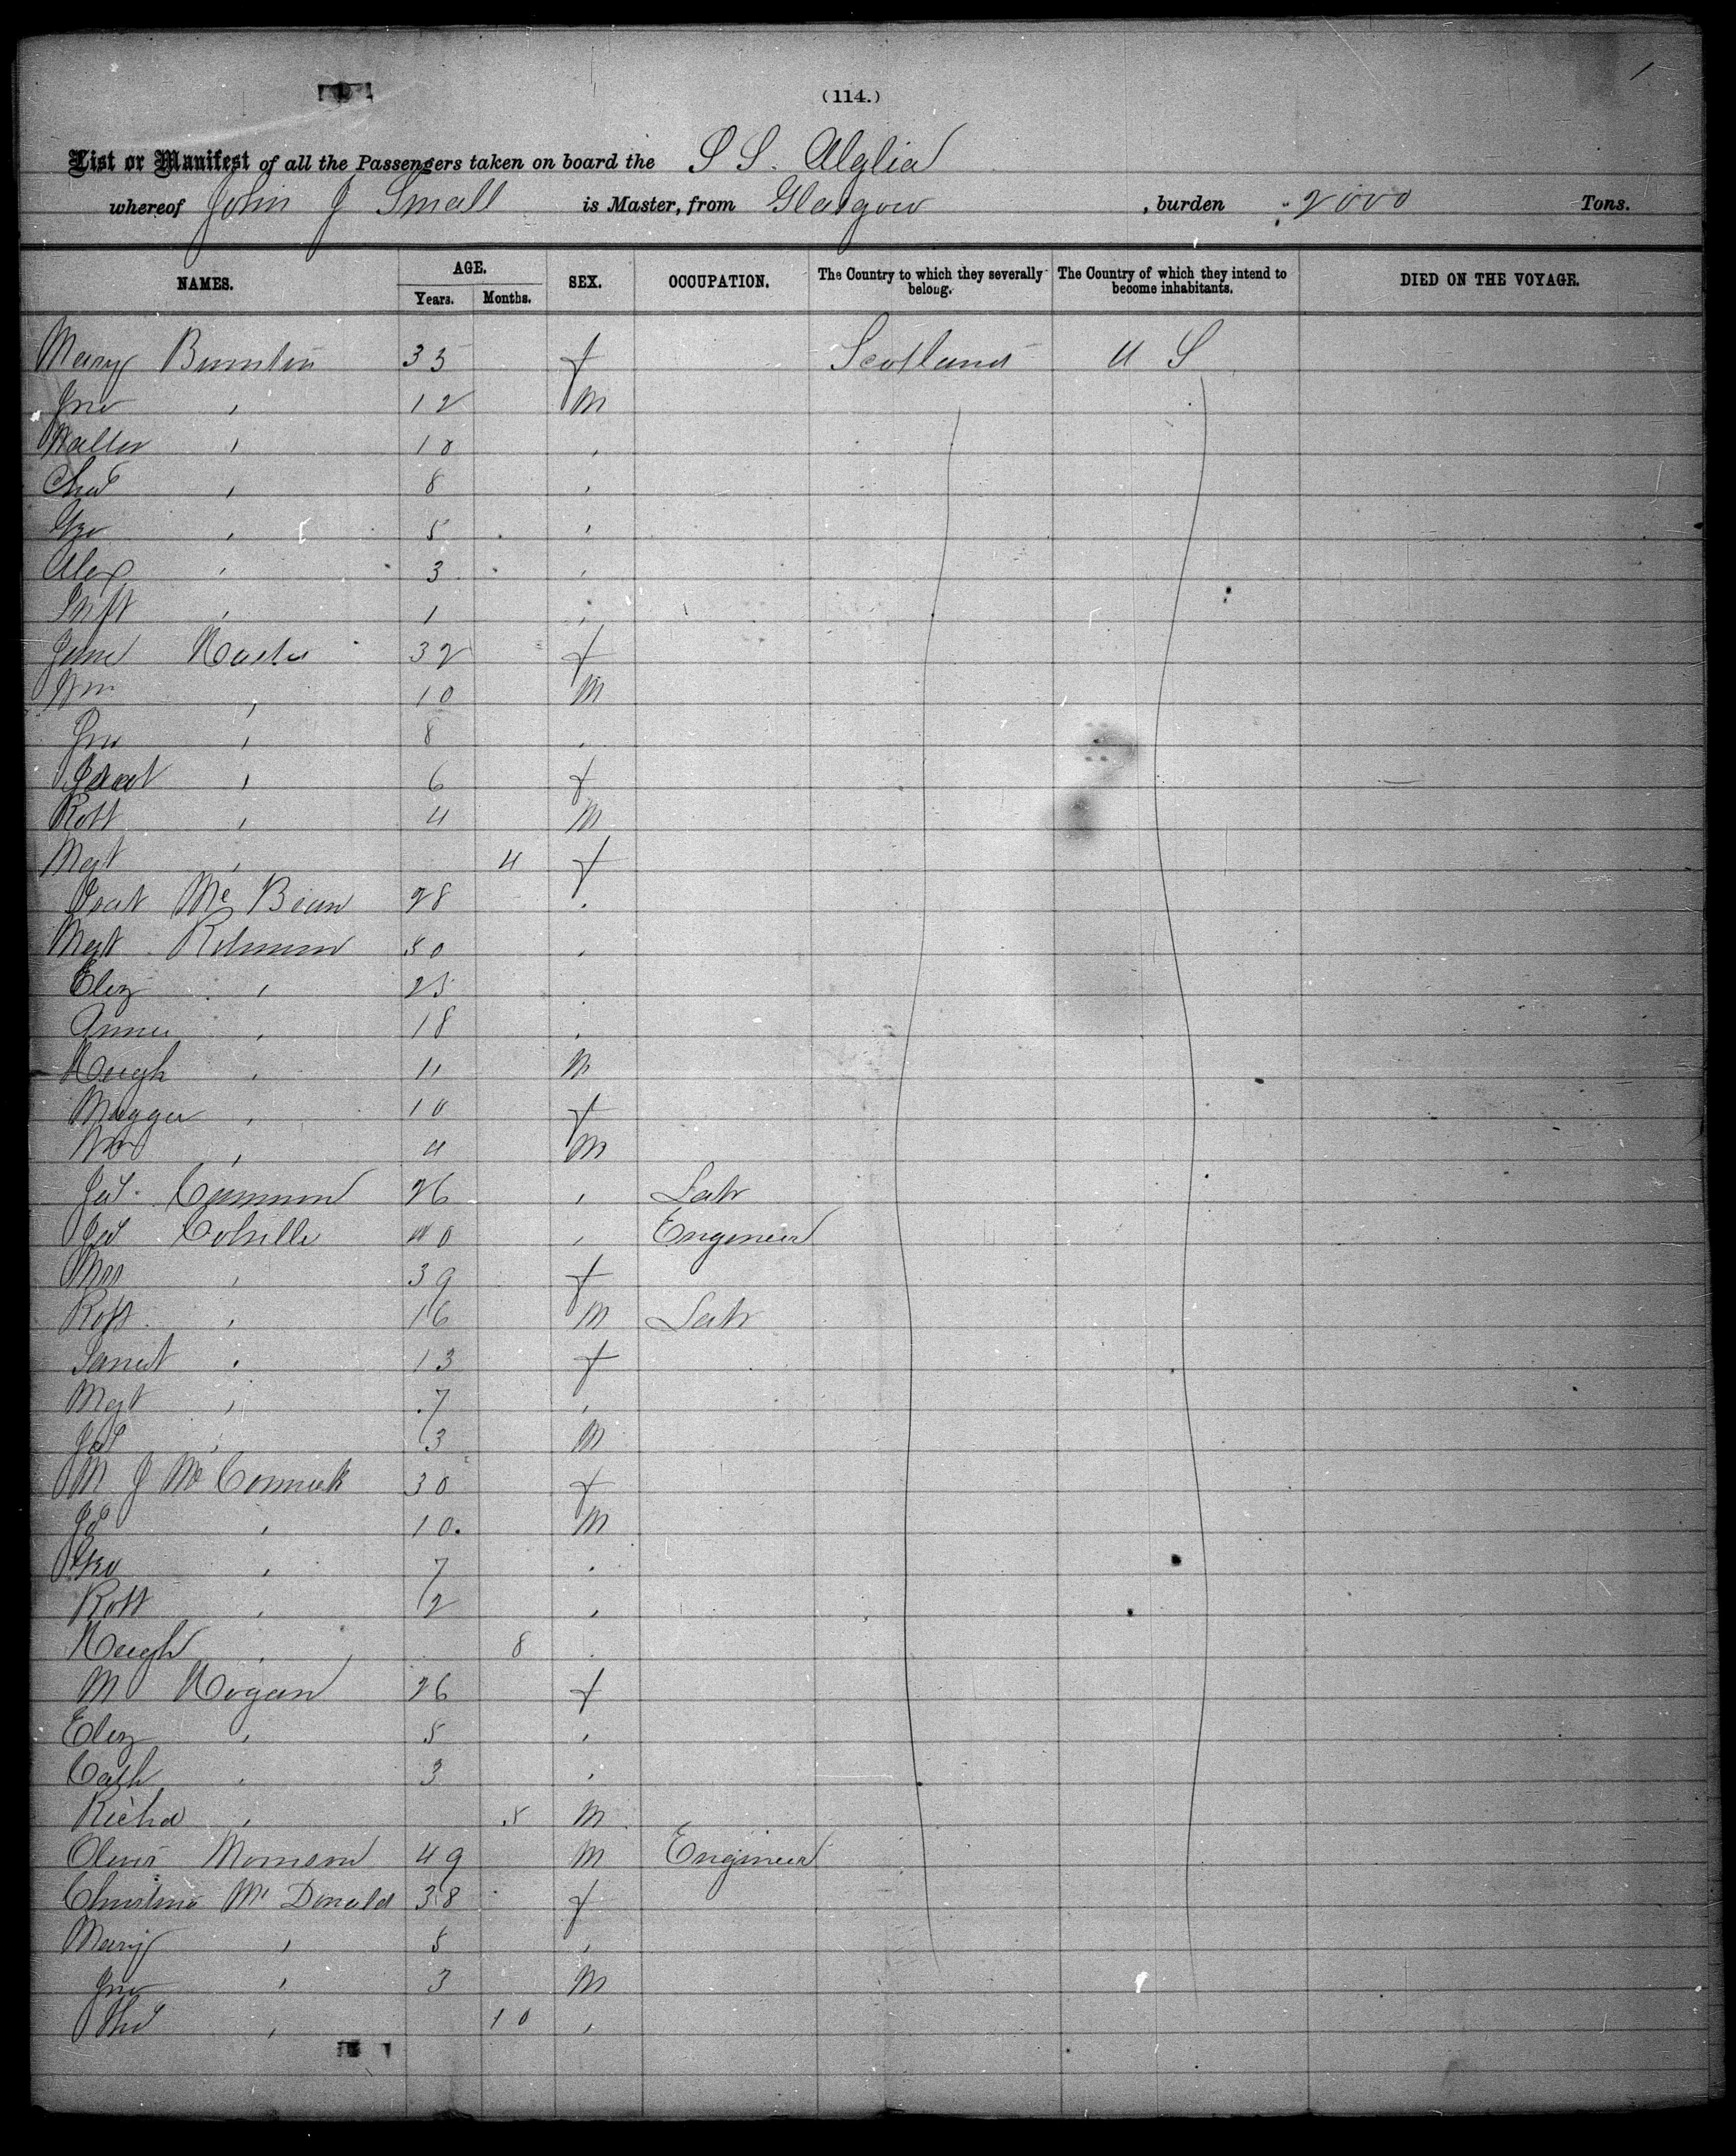 (114.)
List or Manifest of all the Passengers taken on board the S S.
whereof John J Small is Master, from Glasgow , burden 2000 Tons.
NAMES. AGE. Years. Months. SEX. OCCUPATION. The Country to which they severally belong. The Country of which they intend to become inhabitants. DIED ON THE VOYAGE.
Mary 35 f Scotland U S
Jno " 12 M
Walter " 10 "
Chas " 8 "
Geo " 5 "
Alex " 3 "
Inft " 1 "
Jane 32 f
Wm " 10 M
Jno " 8 "
" 6 f
Robt " 4 M
Mgt " 4 f
Mc Bean 28 "
Mgt 50 "
Eliz " 25 "
Annie " 18 "
Hugh " 11 M
Maggie " 10 f
Wm " 4 M
Jas. 26 " Labr
Jas Colville 40 " Engineer
Mrs " 39 f
Robt " 16 M Labr
Janet " 13 f
Mgt " 7 "
Jas " 3 M
M J McCormick 30 f
Js " 10 M
Geo " 7 "
Robt " 2 "
Hugh " 8 "
M Hogan 26 f
Eliz " 5 "
Cath " 3 "
Richd " 5 M
Morrison 49 M Engineer
Christina Mc Donald 38 f
Mary " 5 "
Jno " 3 M
" 10 "